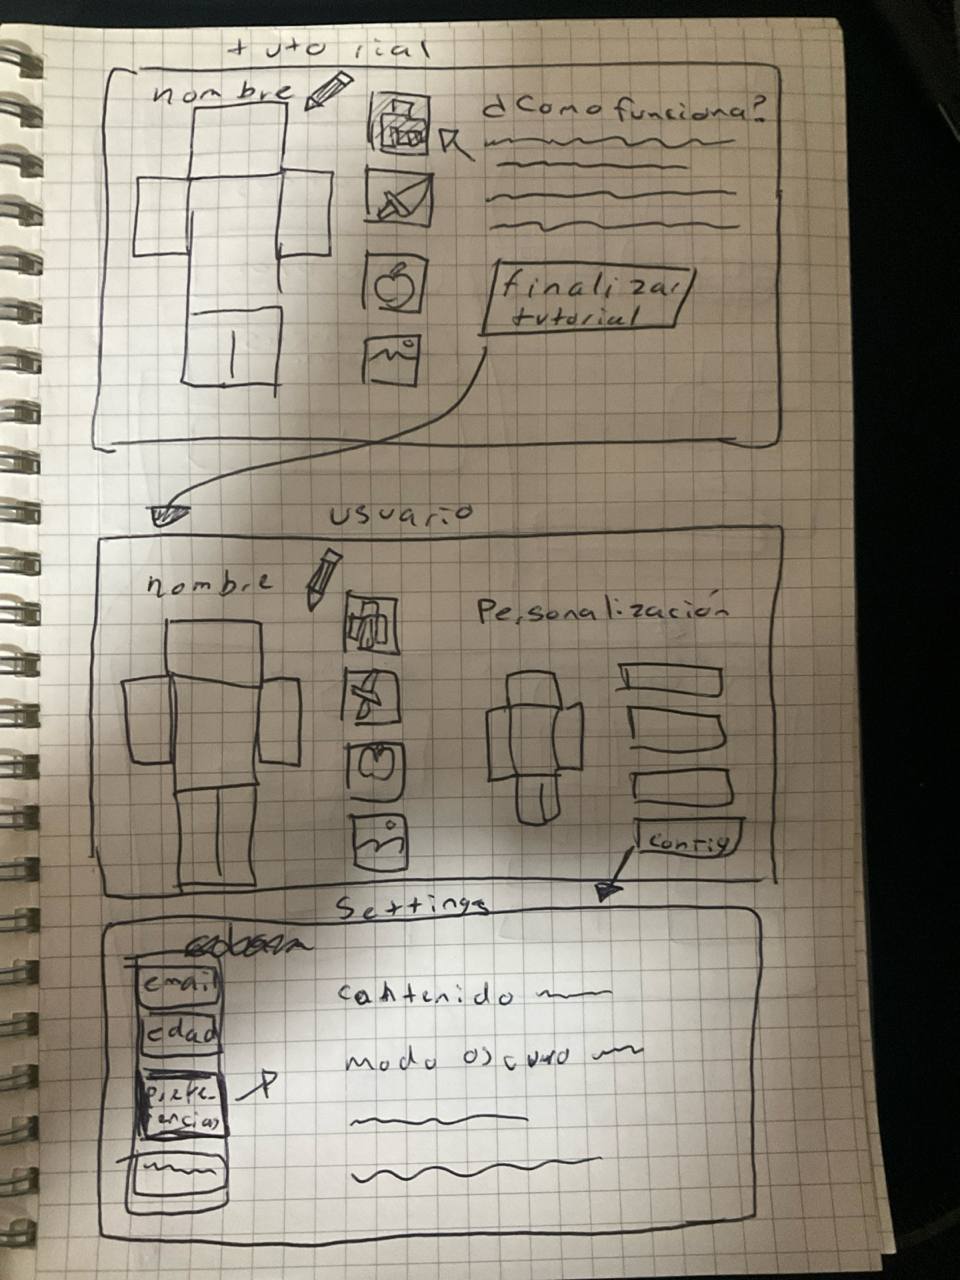 tutorial
nombre
¿Como funciona?
finalizar
tutorial
usuario
nombre
Personalización
config
Settings
email
edad
prefe-
rencias
contenido
modo oscuro